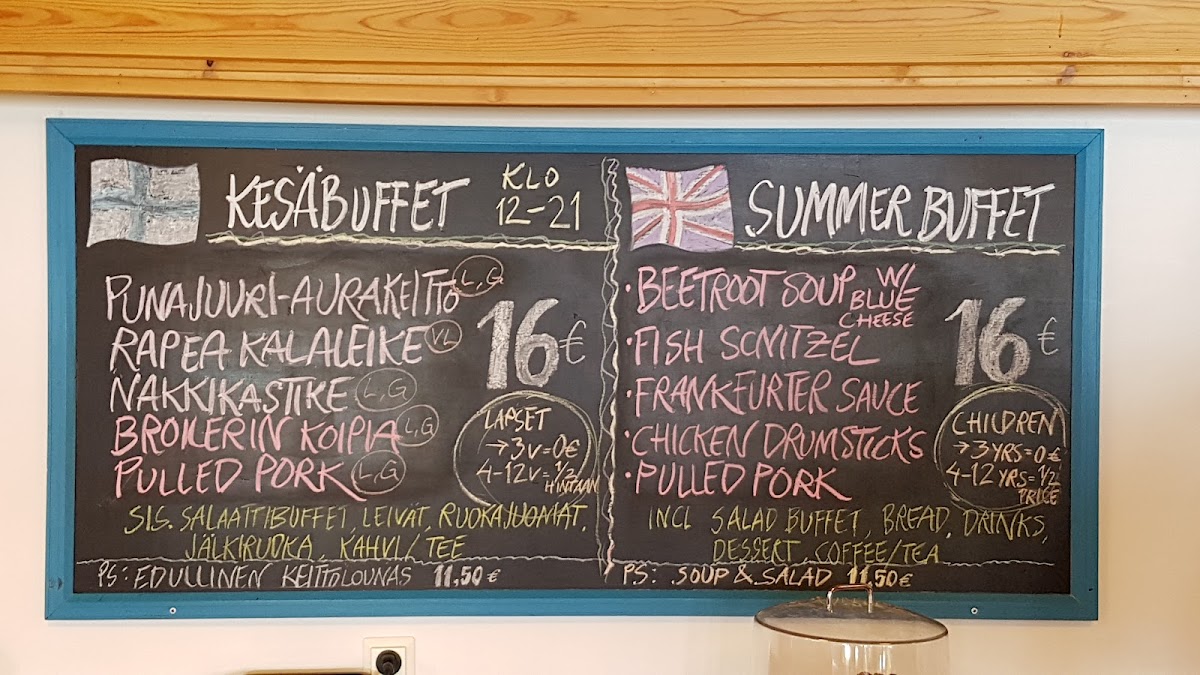 KESÄBUFFET
KLO
12-21
PUNAJUURI-AURAKEITTO L,G
RAPEA KALALEIKE VL
NAKKIKASTIKE L,G
BROILERIN KOIPIA L,G
PULLED PORK L,G
16€
LAPSET
→3V=0€
4-12V=½
HINTAAN
SIS. SALAATTIBUFFET, LEIVÄT, RUOKAJUOMAT,
JÄLKIRUOKA, KAHVI/TEE
PS: EDULLINEN KEITTOLOUNAS 11,50€
SUMMER BUFFET
·BEETROOT SOUP W/
BLUE
CHEESE
·FISH SCNITZEL
·FRANKFURTER SAUCE
·CHICKEN DRUMSTICKS
·PULLED PORK
16€
CHILDREN
→3YRS=0€
4-12YRS=½
PRICE
INCL SALAD BUFFET, BREAD, DRINKS,
DESSERT, COFFEE/TEA
PS: SOUP & SALAD 11,50€